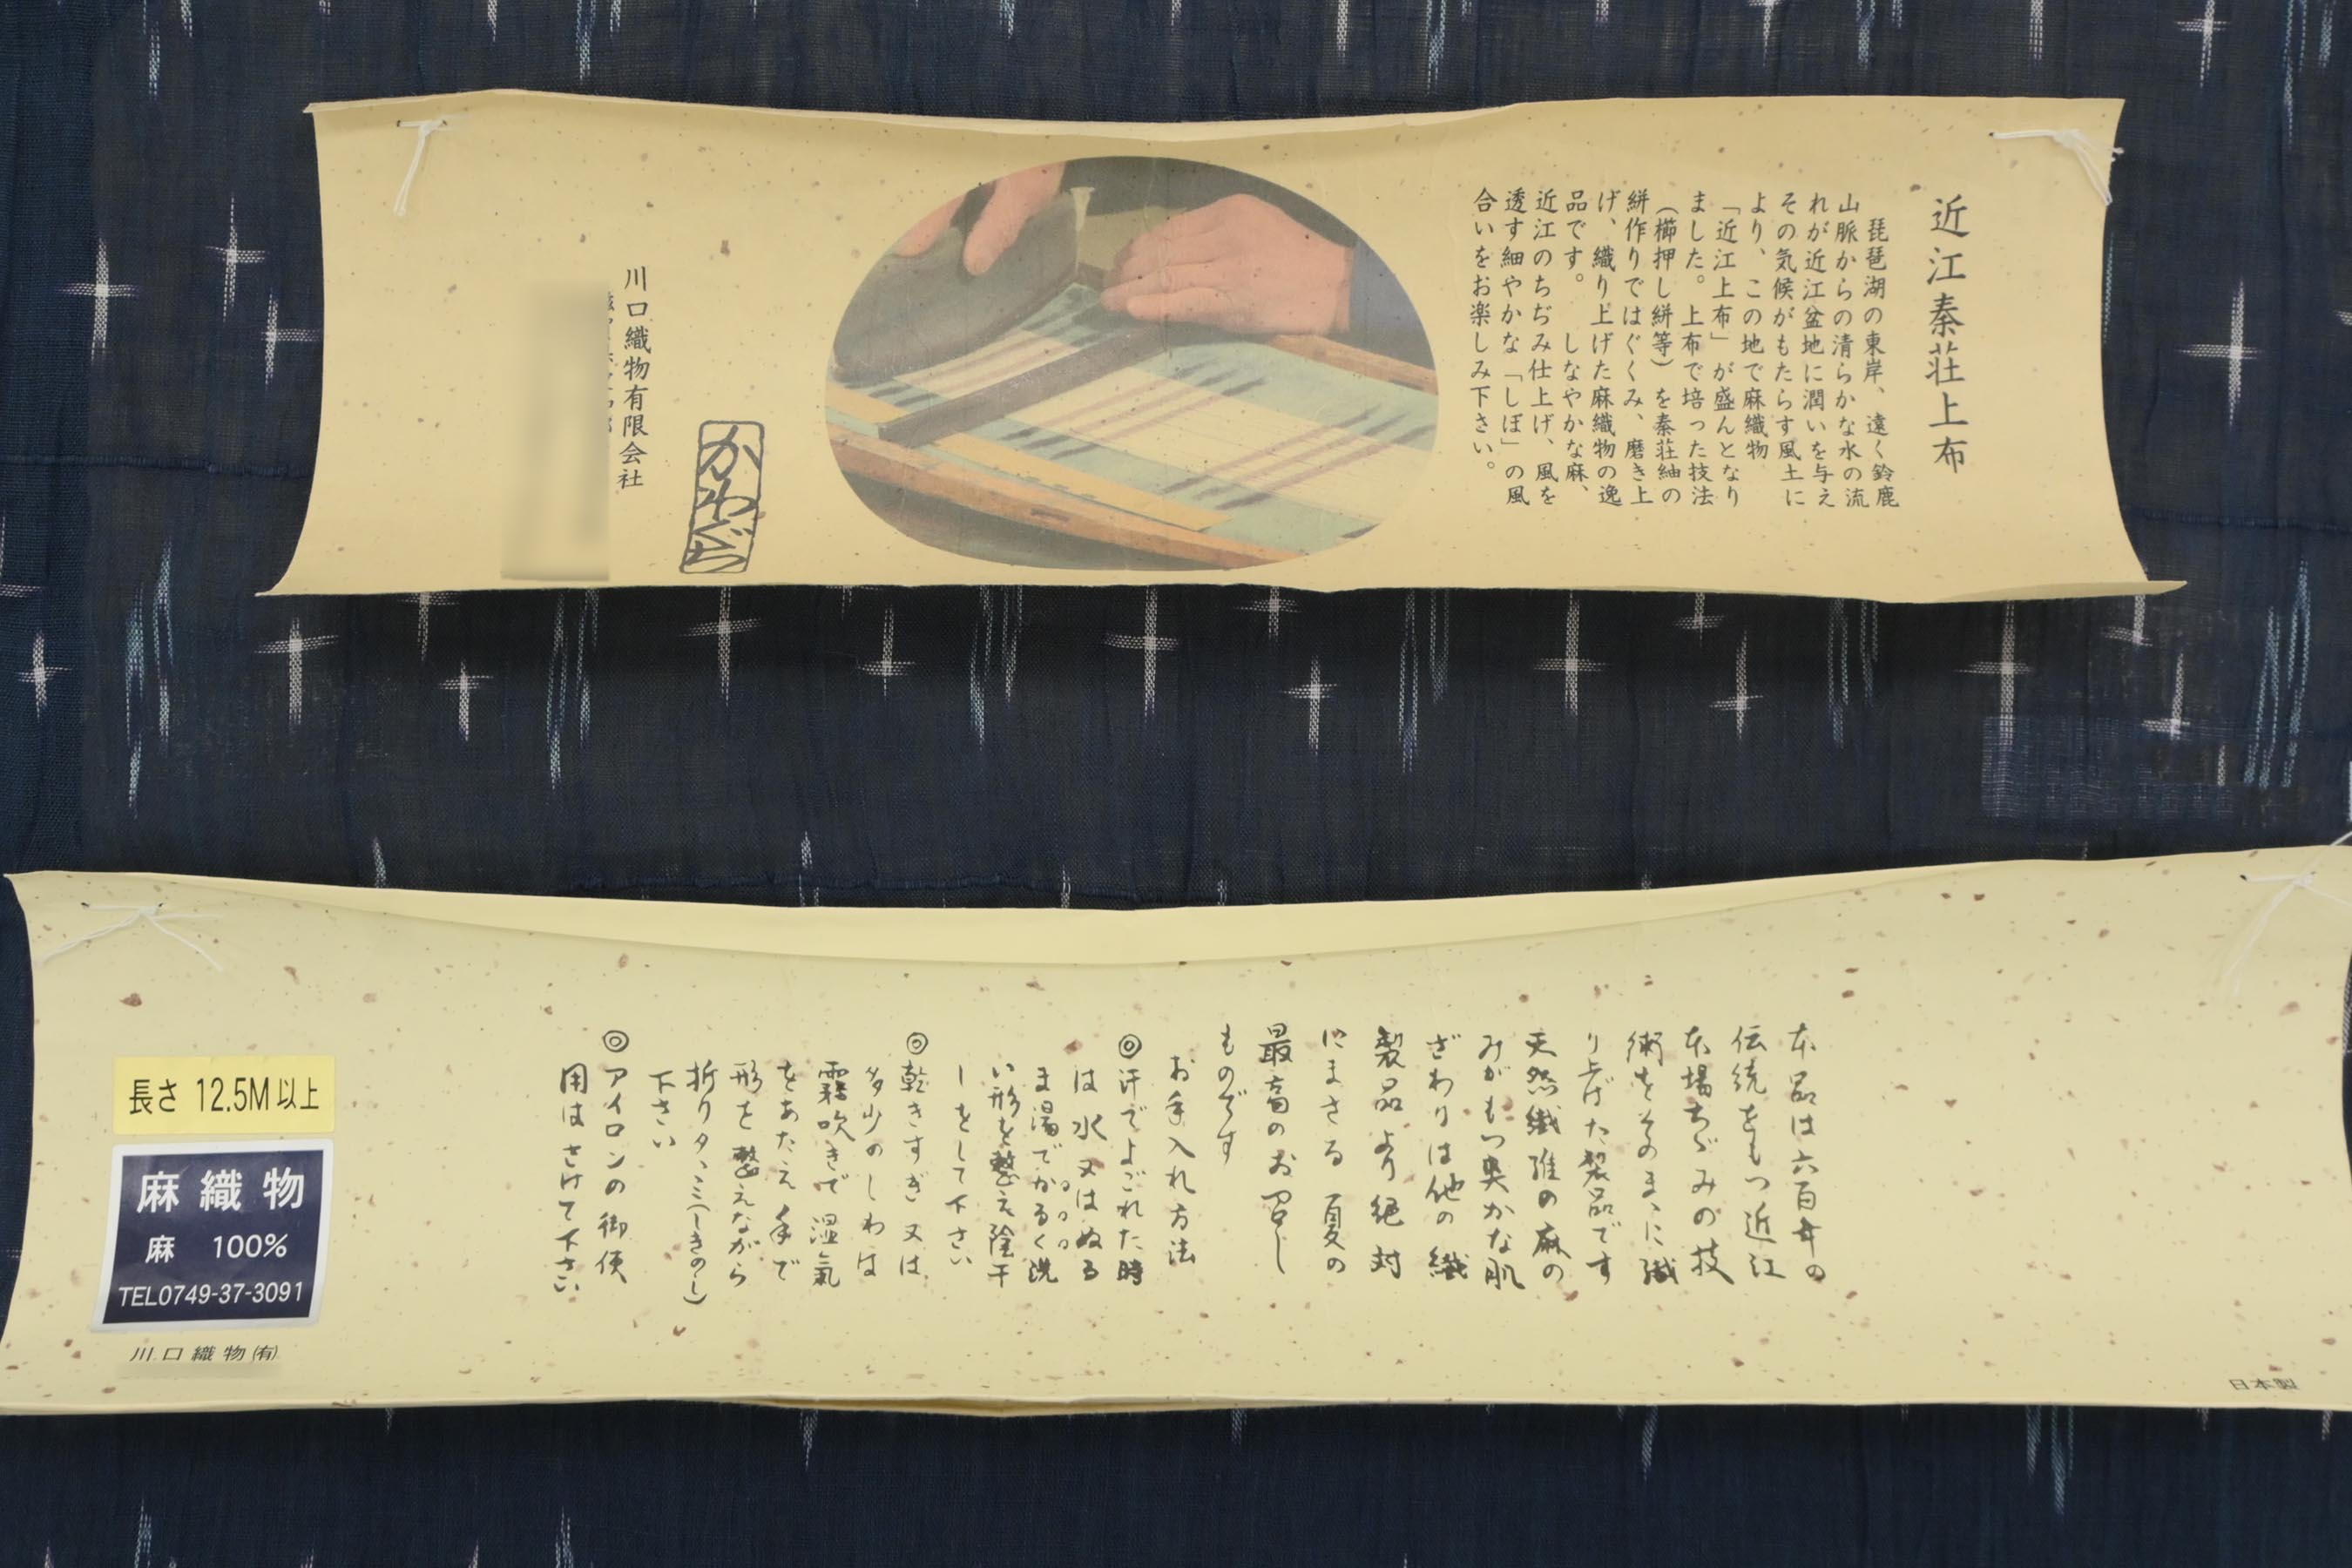 近江秦荘上布
琵琶湖の東岸、遠く鈴鹿
山脈からの清らかな水の流
れが近江盆地に潤いを与え
その気候がもたらす風土に
より、この地で麻織物
「近江上布」が盛んとなり
ました。上布で培った技法
（櫛押し絣等）を秦荘紬の
絣作りではぐくみ、磨き上
げ、織り上げた麻織物の逸
品です。　しなやかな麻、
近江のちぢみ仕上げ、風を
透す細やかな「しぼ」の風
合いをお楽しみ下さい。
かわぐち
川口織物有限会社
本品は六百年の
伝統をもつ近江
本場ちゞみの技
術をそのまゝに織
り上げた製品です
天然繊維の麻の
みがもつ爽かな肌
ざわりは他の織
製品より絶対
にまさる夏の
最高のお召し
ものです
お手入れ方法
◎汗でよごれた時
は水又はぬる
ま湯でかるく洗
い形を整え陰干
しをして下さい
◎乾きすぎ又は
多少のしわは
霧吹きで湿氣
をあたえ手で
形を整えながら
折りタヽミ（しきのし）
下さい
◎アイロンの御使
用はさけて下さい
長さ 12.5M以上
麻織物
麻 100%
TEL0749-37-3091
川口織物㈲
日本製